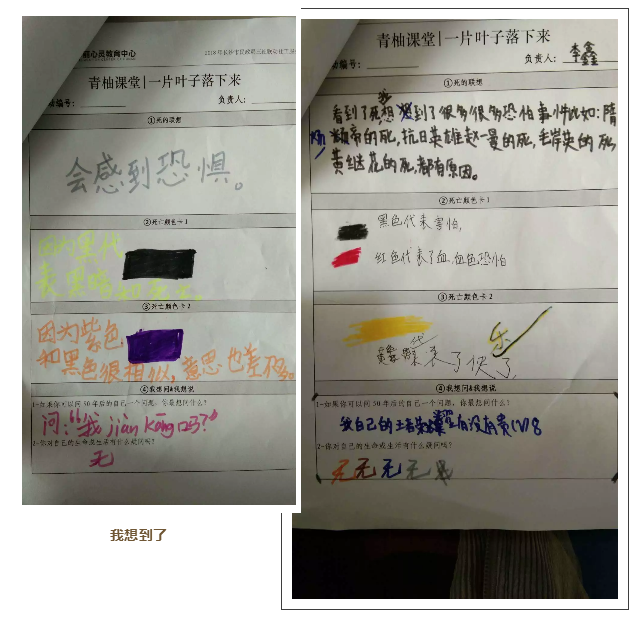 心员教育中心
青柚课堂|一片叶子落下来
编号:
负责人:
①死的联想
会感到恐惧。
②死亡颜色卡1
因为黑代
表黑暗
③死亡颜色卡2
因为紫色,
和黑色很相似,意思也差不多。
④我想问&我想说
1-如果你可以问50年后的自己一个问题,你最想问什么?
问:“我jiàn kāng吗?”
2-你对自己的生命或生活有什么疑问吗?
无
我想到了
青柚课堂|一片叶子落下来
编号:
负责人: 李鑫
①死的联想
看到了死我想到了很多很多恐怖事件比如:隋
炀帝的死,抗日英雄赵一曼的死,毛岸英的死
黄继光的死,都有原因。
②死亡颜色卡1
黑色代表害怕,
红色代表了血,血色恐怕
③死亡颜色卡2
代来了快乐
④我想问&我想说
1-如果你可以问50年后的自己一个问题,你最想问什么?
我自己的
没有
2-你对自己的生命或生活有什么疑问吗?
无无无无